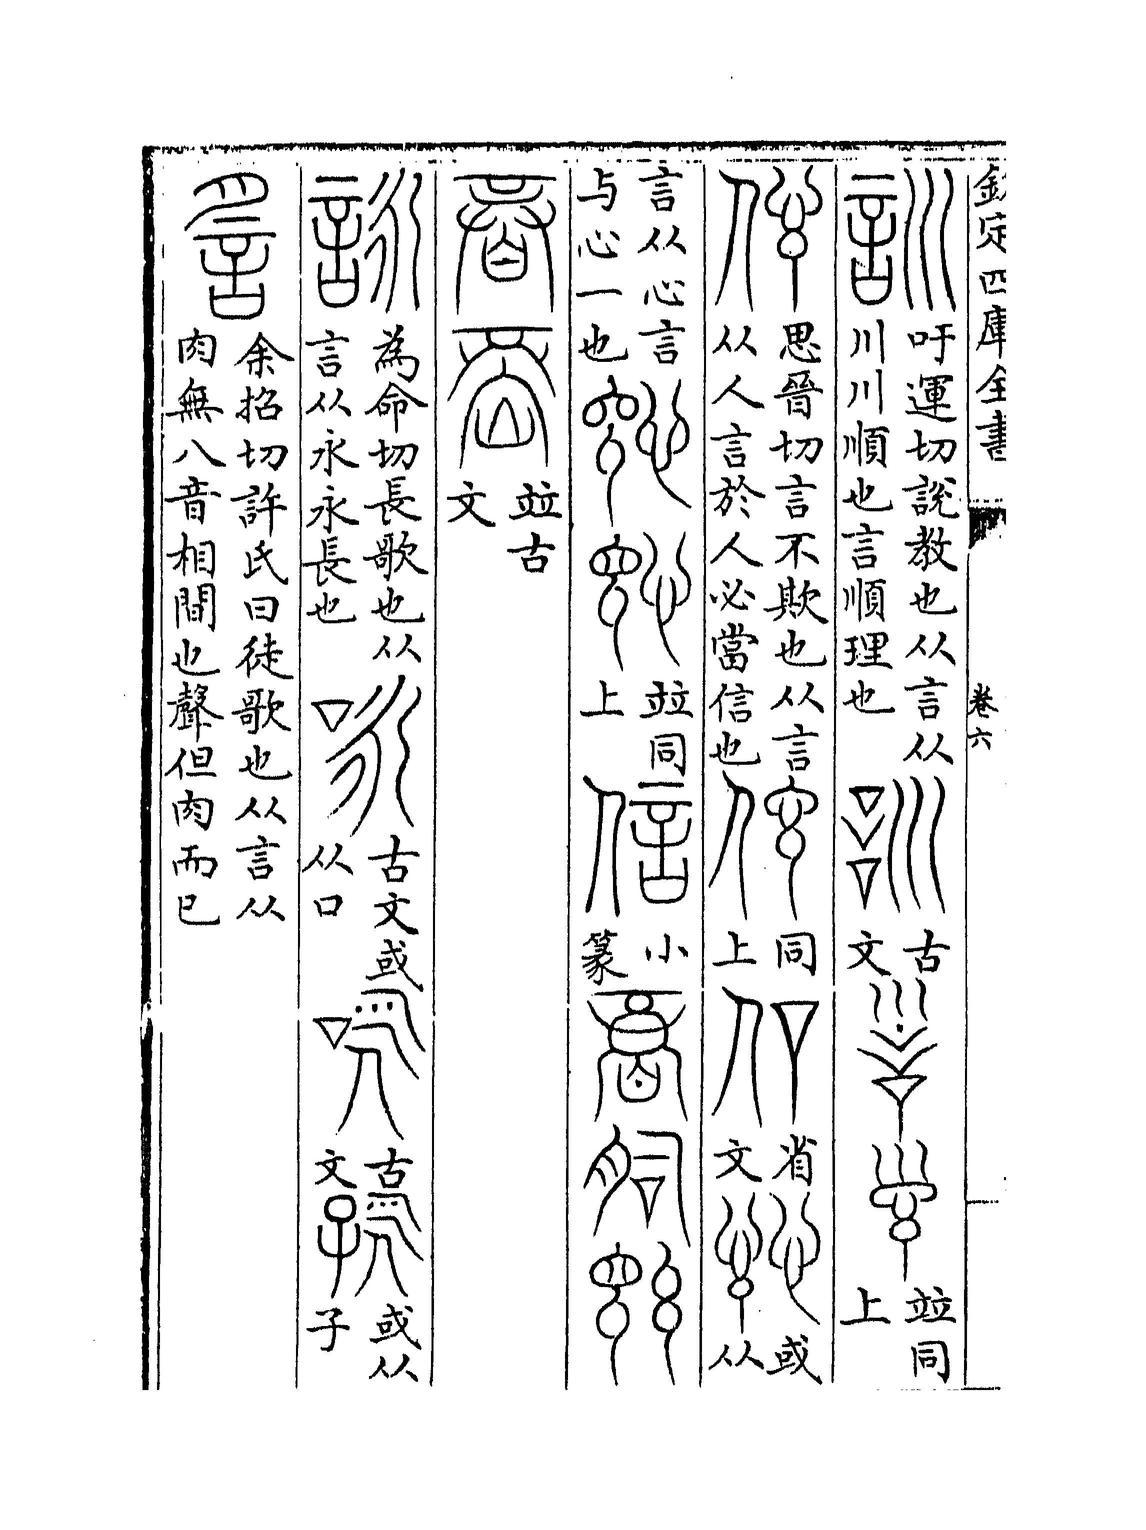 欽定四庫全書
卷六
訓
吁運切說教也从言从
川川順也言順理也
古
文
並同
上
信
思晉切言不欺也从言
从人言於人必當信也
同
上
省
文
或
从
言从心言
与心一也
並同
上
信
小
篆
並古
文
詠
為命切長歌也从
言从永永長也
古文或
从口
古
文
或从
子
余招切許氏曰徒歌也从言从
肉無八音相間也聲但肉而已